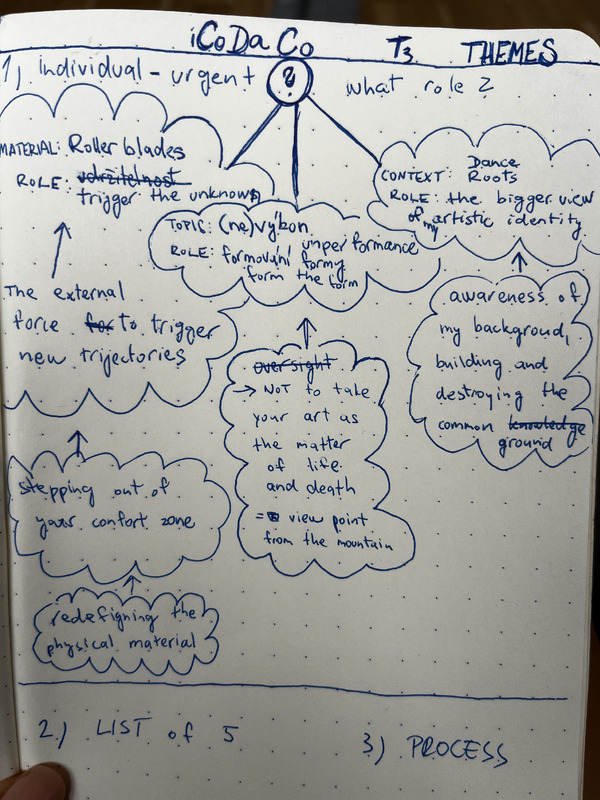 iCoDaCo T3 THEMES
1) Individual - urgent ? what role?
MATERIAL: Rollerblades
ROLE: udržitelnost
trigger the unknown
The external
force for to trigger
new trijectories
stepping out of
your confort zone
redefigning the
physical material
TOPIS: (ne)výkon
unperformance
ROLE: formování formy
form the form
oversight
→ NOT to take
your art as
the matter
of life
and death
= view point
from the mountain
CONTEXT: Dance
Roots
ROLE: the bigger view
of my artistic identity
awareness of
my background,
building and
destroying the
common knowledge
ground
2) LIST of 5
3) PROCESS